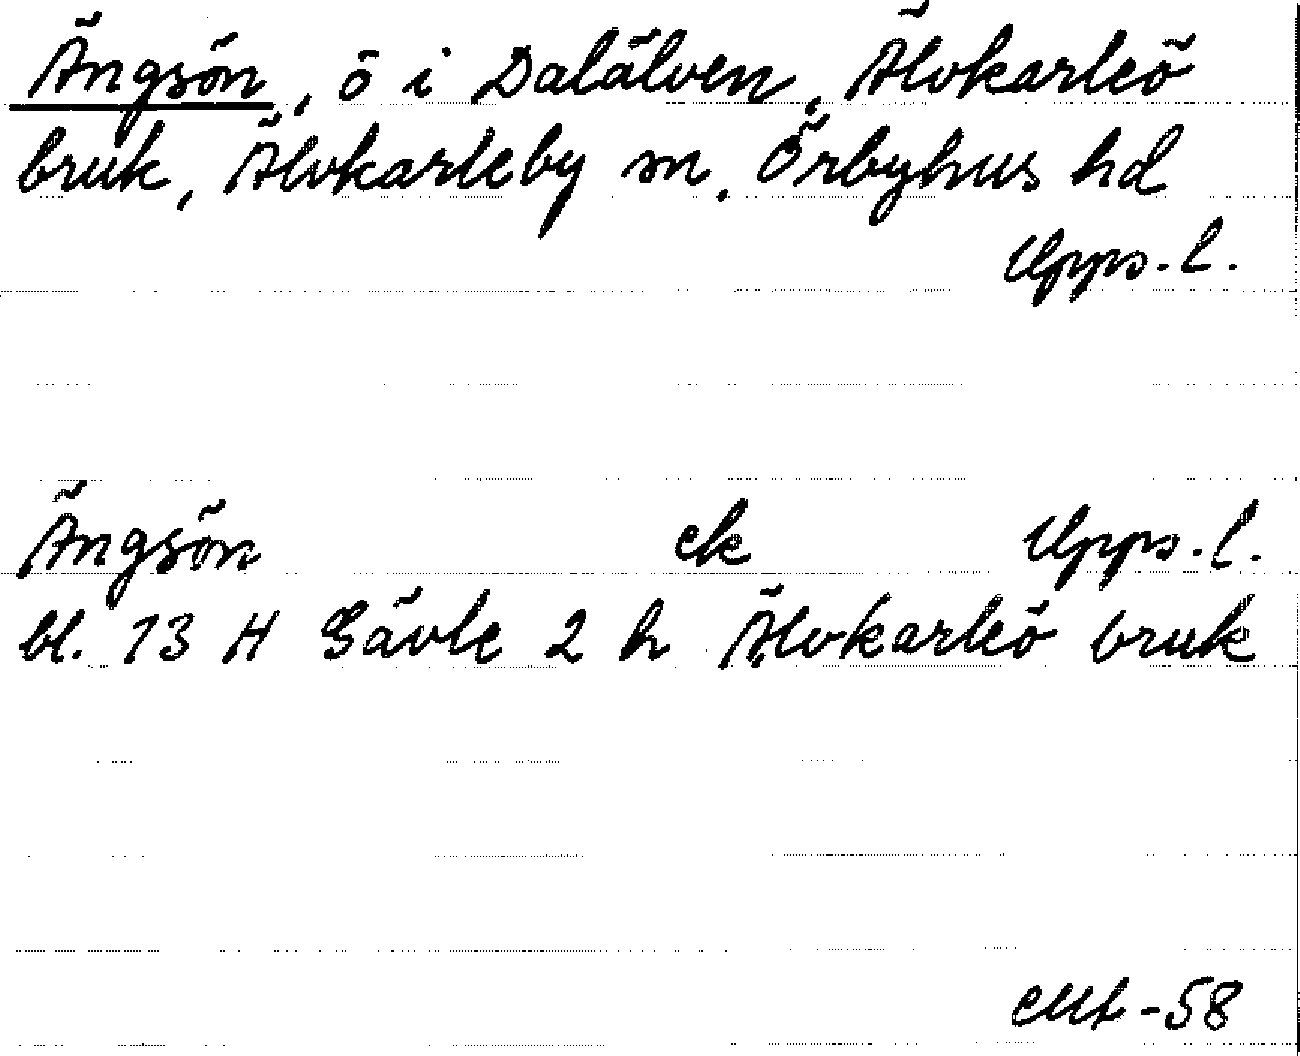 Ängsön, ö i Dalälven, Älvkarleö
bruk, Älvkarleby sn, Örbyhus hd
Upps. l.
Ängsön ek Upps. l.
bl. 13 H Gävle 2 h Älvkarleö bruk
-58